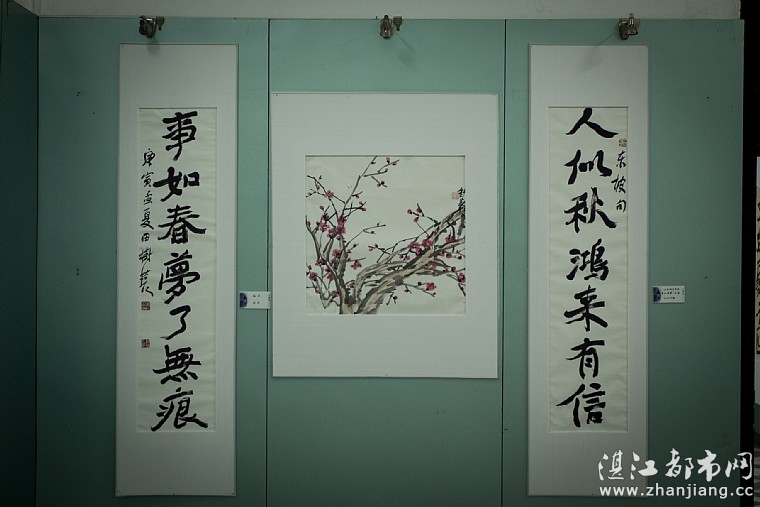 人似秋鸿来有信
东坡句
事如春夢了無痕
庚寅孟夏田樹萇
湛江都市网
www.zhanjiang.cc